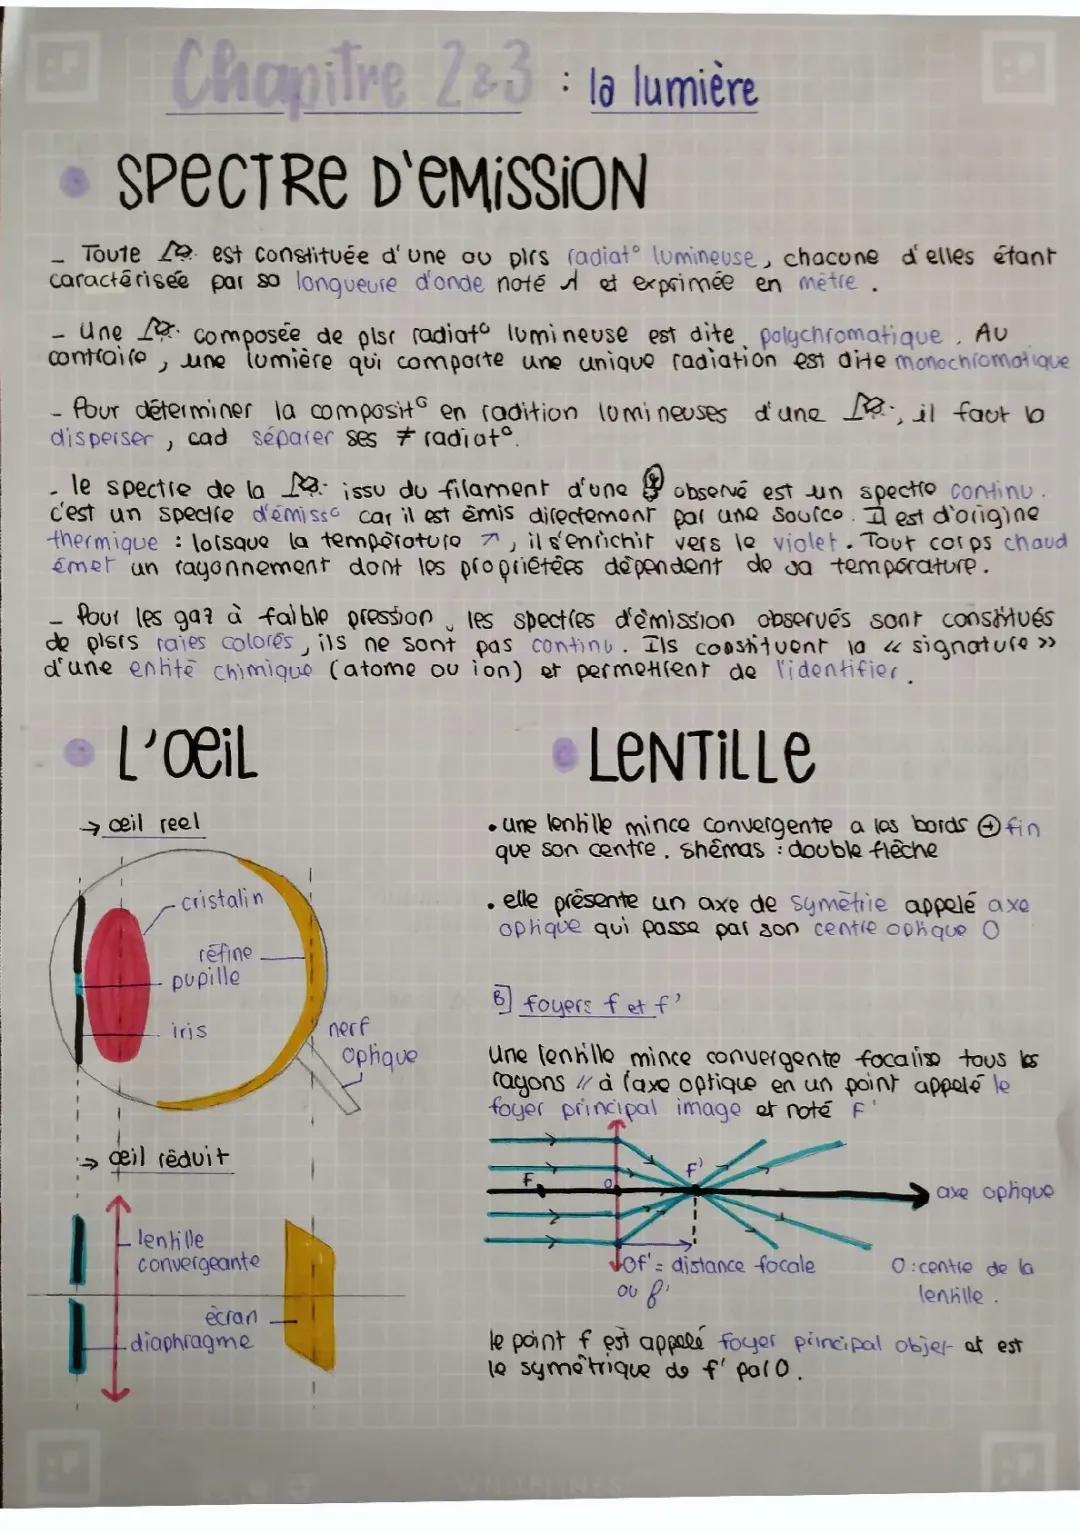 Chapitre 2&3 : la lumière
• SPECTRE D'EMISSION
_ Toute est constituée d'une ou plrs radiat° lumineuse, chacune d'elles étant
caractérisée par sa longueure d'onde noté λ et exprimée en mètre.
_ Une composée de plsr radiat° lumineuse est dite polychromatique. Au
contraire, une lumière qui comporte une unique radiation est dite monochromatique
_ Pour déterminer la composit° en radition lumineuses d'une , il faut la
disperser, cad séparer ses ≠ radiat°.
_ le spectre de la issu du filament d'une observé est un spectre continu.
c'est un spectre d'émiss° car il est émis directement par une source. Il est d'origine
thermique : lorsque la température ↗, il s'enrichit vers le violet. Tout corps chaud
émet un rayonnement dont les propriétées dépendent de sa température.
_ Pour les gaz à faible pression, les spectres d'émission observés sont constitués
de plsrs raies colorés, ils ne sont pas continu. Ils constituent la « signature »
d'une entité chimique (atome ou ion) et permettrent de l'identifier.
• L'OEIL
→ œil reel
cristalin
rétine
pupille
iris
nerf
optique
→ œil réduit
lentille
convergeante
écran
diaphragme
• LENTILLE
• une lentille mince convergente a les bords ⊕ fin
que son centre. shémas : double flèche
• elle présente un axe de symétrie appelé axe
optique qui passe par son centre optique O
B] foyers f et f'
Une lentille mince convergente focalise tous les
rayons // à l'axe optique en un point appelé le
foyer principal image et noté F'
F
O
F'
axe optique
Of' = distance focale
ou f'
O : centre de la
lentille.
le point f est appelé foyer principal objet et est
le symétrique de f' par O.